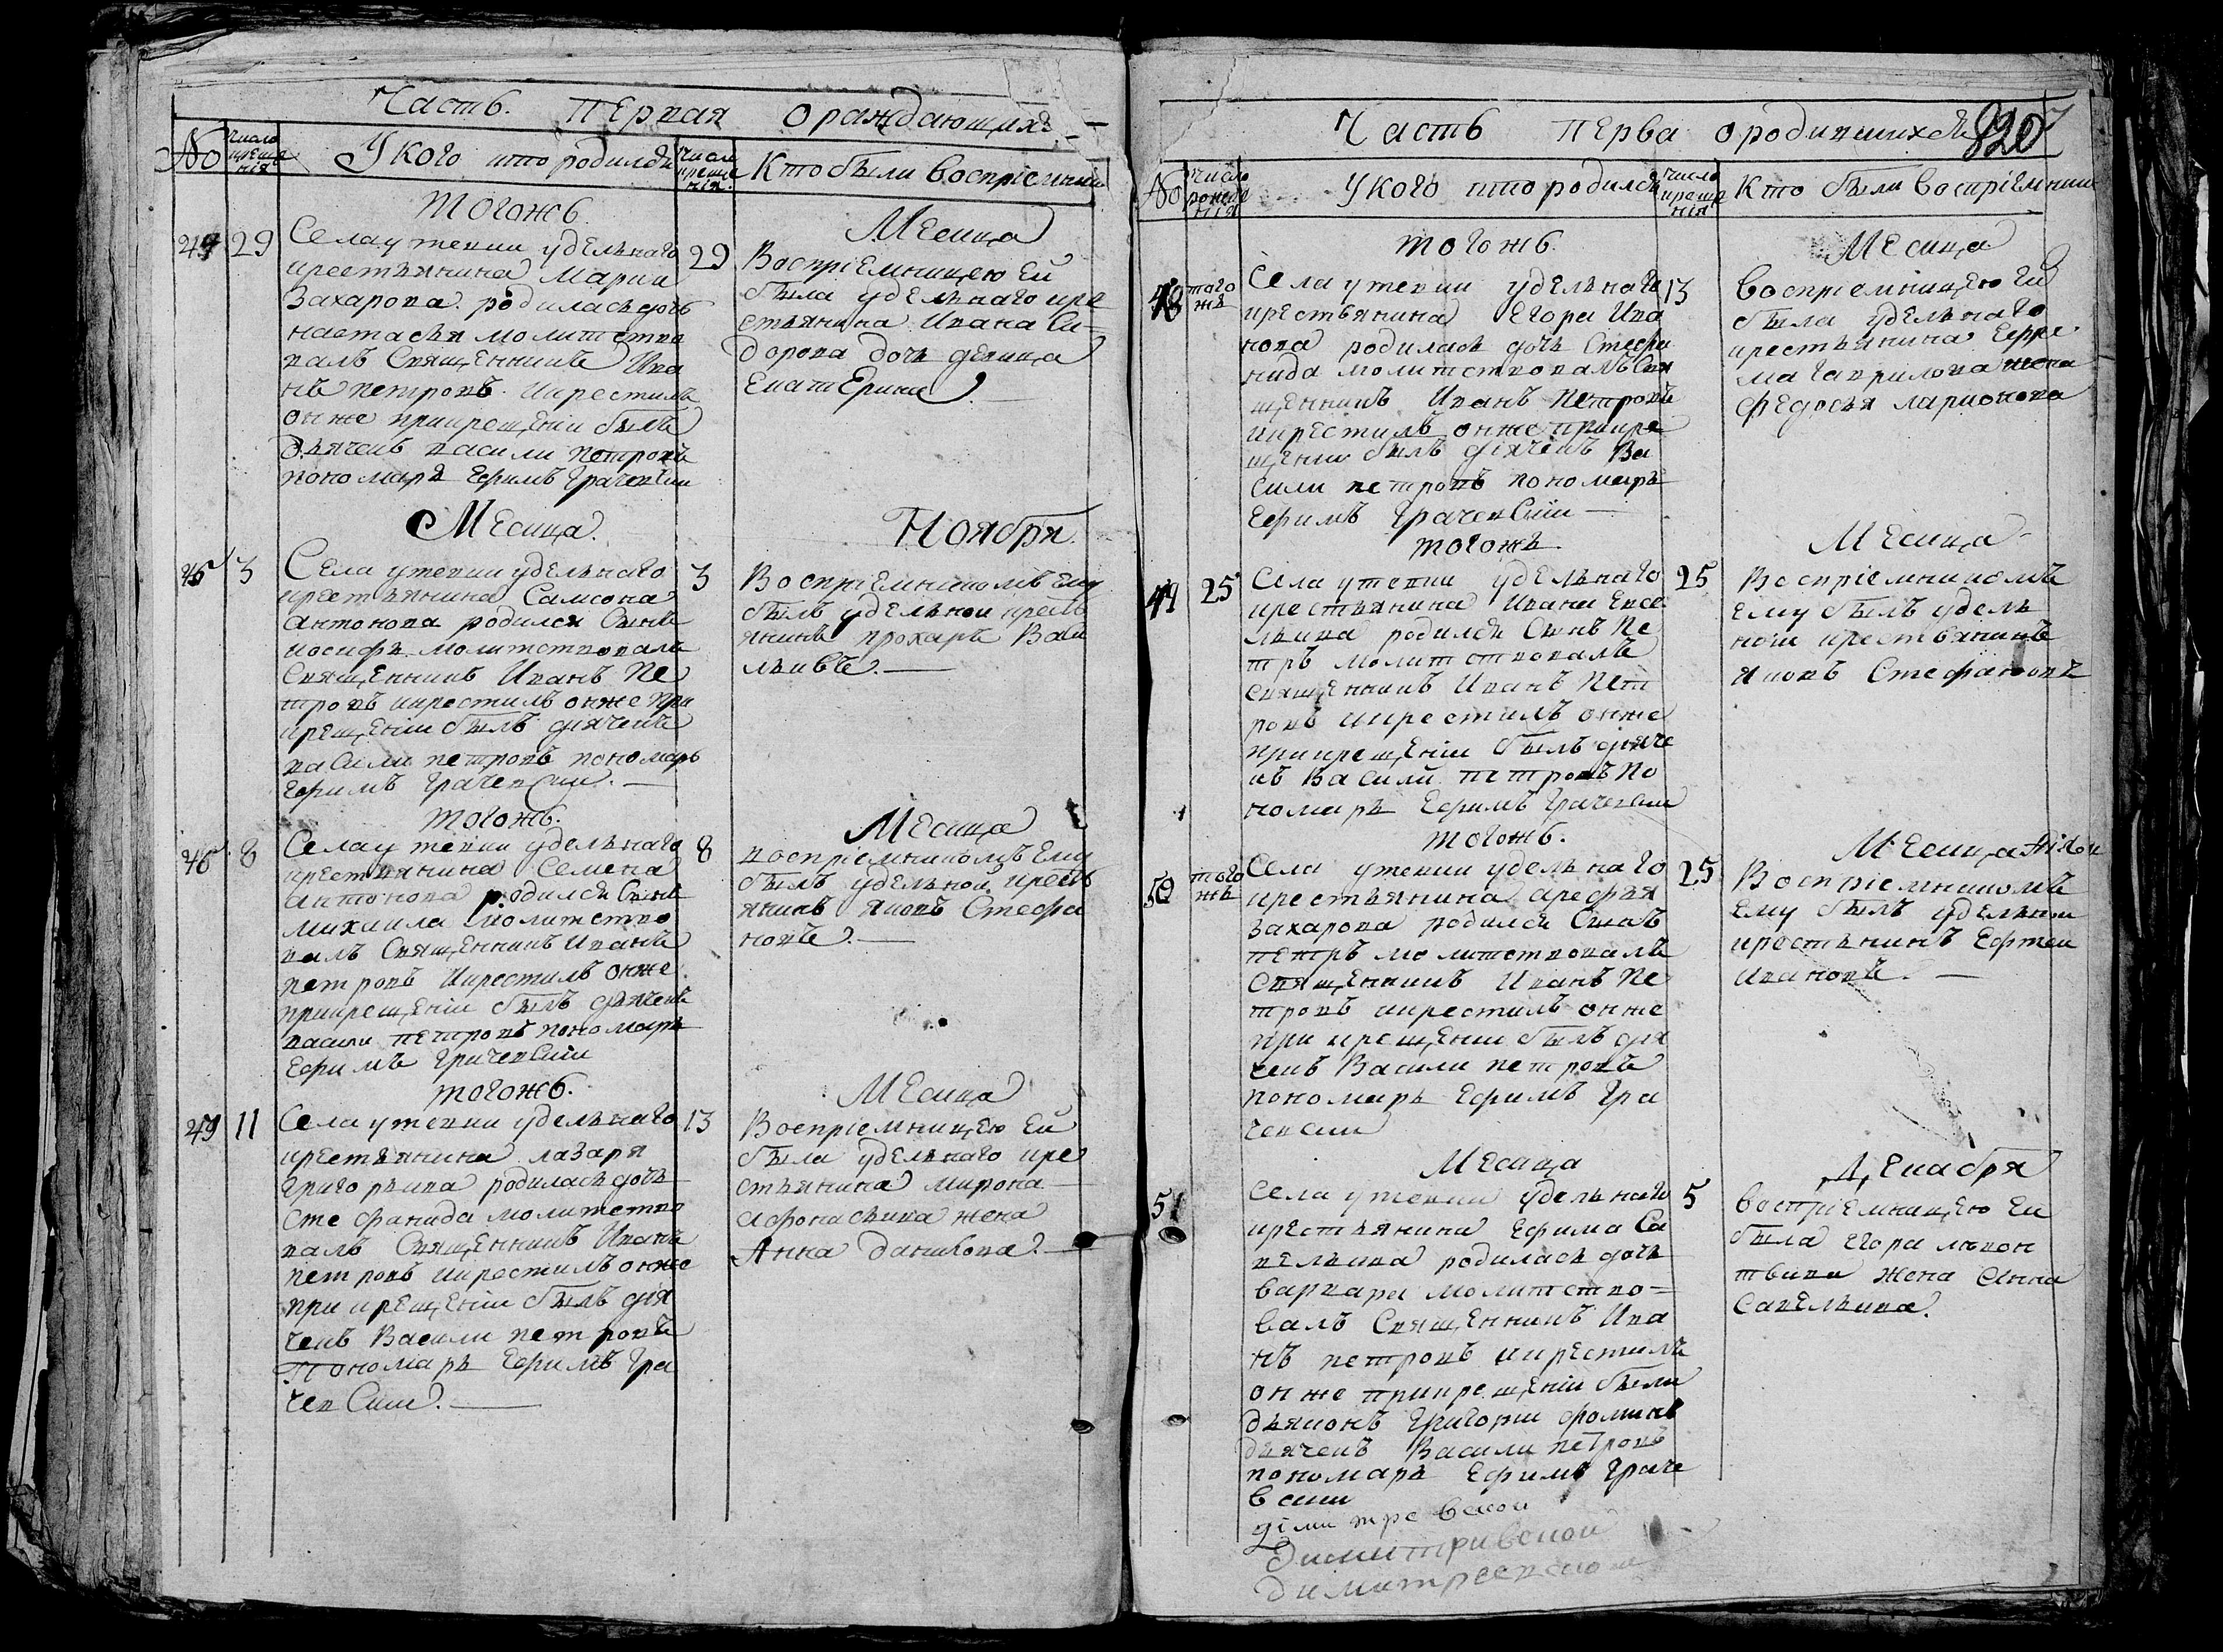 Часть. первая ораждающихъ
No
число
креще
нія
Укого кто родился
число
креще
нія.
Кто были воспріемники
тогожь
Месица
44 29 Села утевки удельнаго 29
крестьянина Марка
Захарова родиласьдочь
настасья молитство
валъ Священникъ Ива
нъ петровъ икрестилъ
онже прикрещеніи былъ
дьячекъ васили петровъ
пономарь Ефимъ Грачевски
Воспріемницею Ей
была удельнаго кре
стьянина Ивана Си-
дорова дочь девица
Екатерина.
Месица. Ноября.
45 3 Села утевки удельнаго 3
крестьянина Самсона
антонова родился Сынъ
иосифъ молитствовалъ
Священникъ Иванъ Пе
тровъ икрестилъ онже при
крещеніи былъ диячекъ
васили петровъ пономарь
Ефимъ Грачевски.
Воспріемникомъ Ему
былъ удельной крест
янинъ прохаръ Васи
льивъ.
тогожь. Месица
46 8 Села утевки удельнаго 8
крестьянина Семена
антонова родился Сынъ
михаила молитство
валъ Священникъ Иванъ
петровъ Икрестилъ онже
прикрещеніи былъ дьячекъ
васили петровъ пономарь
Ефимъ Грачевскіи
воспріемникомъ Ему
былъ удельной крест
янинъ яковъ Стефа
новъ.
тогожь. Месица
47 11 Села утевки удельнаго 13
крестьянина лазаря
григорьива родиласьдочь
Стефанида молитство
валъ Священникъ Иванъ
петровъ икрестилъ онже
при крещеніи былъ дія
чекъ Васили петровъ
Пономарь Ефимъ Гра
чевски.
Воспріемницею Ей
была удельнаго кре
стьянина мирона
афонасьива жена
Анна данилова.
Часть перва ородившихся 820
No
число
рожде
нія
Укого кто родился
число
креще
нія
Кто были воспріемники
тогожь. Месица
48 того
же
Села утевки удельнаго 13
крестьянина Егора Ива
нова родилась дочь Стефа
нида молитствовалъ Свя
щенникъ Иванъ Петровъ
икрестилъ онже прикре
щеніи былъ діячекъ Ва
сили петровъ пономарь
Ефимъ Грачевскіи
воспріемницею Ей
была удельнаго
крестьянина Ефре
ма гаврилова жена
федосья ларионова
тогожь Месица
49 25 Села утевки удельнаго 25
крестьянина Ивана Евсе
льива родился Сынъ Пе
тръ молитствовалъ
священникъ Иванъ Пет
ровъ икрестилъ онже
прикрещеніи былъ дияче
къ Васили петровъ По
номарь Ефимъ Грачевски
Воспріемникомъ
Ему былъ удель
ной крестьянинъ
яковъ Стефановъ
тогожь. Месица
50 того
же
Села утевки удельнаго 25
крестьянина арефья
захарова родился Сынъ
петръ молитствовалъ
Священникъ Иванъ Пе
тровъ икрестилъ онже
при крещеніи былъ дия
чекъ Васили петровъ
пономарь Ефимъ Гра
чевски
Воспріемникомъ
Ему былъ удельной
крестянинъ Ефтей
ивановъ.
Месица Декабря
51 Села утевки удельнаго 5
крестьянина Ефима Са
вельива родилась дочь
варвара молитство=
валъ Священникъ Ива
нъ петровъ икрестилъ
онже прикрещеніи были
дьяконъ Григории фоминъ
дьячекъ Васили петровъ
пономарь Ефимъ Граче
вски
воспріемницею Ей
была Егора левон
тьива жена анна
Савельива.
діми тре вской
димитривской
димитреевской